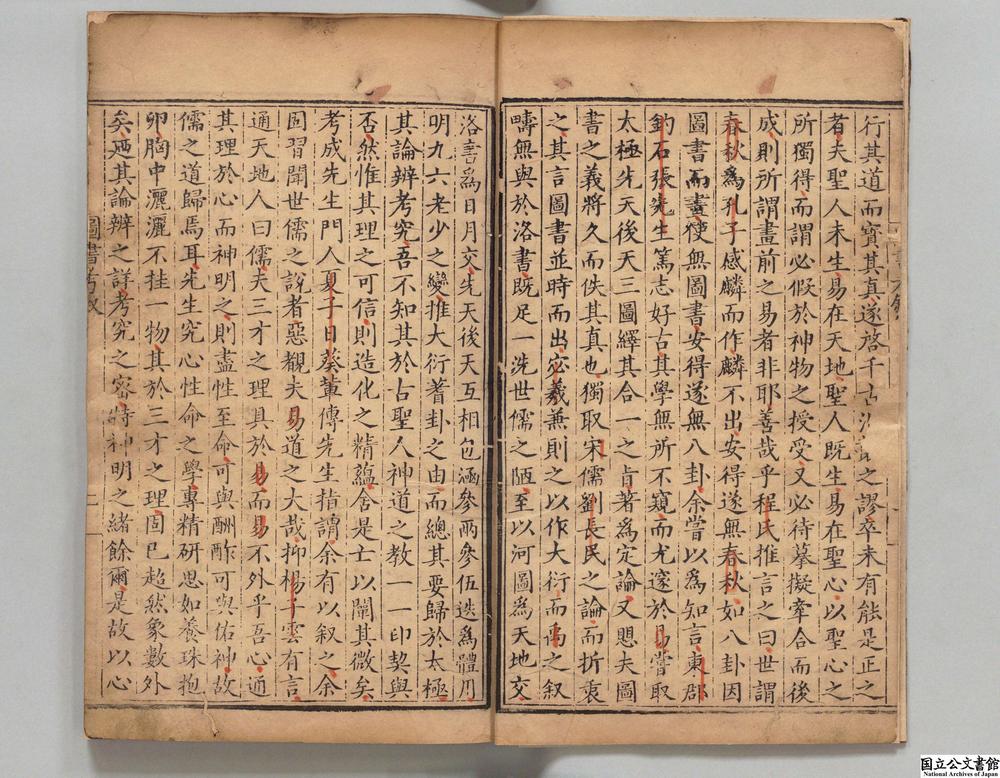 行其道而寶其真遂啓千古之謬卒未有能是正之
者夫聖人未生易在天地聖人既生易在聖心以聖心之
所獨得而謂必假於神物之授受又必待摹擬牽合而後
成則所謂畫前之易者非耶善哉乎程氏推言之曰世謂
春秋爲孔子感麟而作麟不出安得遂無春秋如八卦因
圖書而畫使無圖書安得遂無八卦余嘗以爲知言東郡
釣石張先生篤志好古其學無所不窺而尤邃於易嘗取
太極先天後天三圖繹其合一之旨著爲定論又愳夫圖
書之義將久而佚其真也獨取宋儒劉長民之論而折衷
之其言圖書並時而出宓羲兼則之以作大衍而禹之叙
疇無與於洛書既足一洗世儒之陋至以河圖爲天地交
洛書爲日月交先天後天互相包涵參兩參伍迭爲體用
明九六老少之變推大衍蓍卦之由而總其要歸於太極
其論辨考究吾不知其於古聖人神道之教一一印契與
否然惟其理之可信則造化之精蘊舍是亡以闡其微矣
考成先生門人夏子日葵軰傳先生指謂余有以叙之余
固習聞世儒之說者惡覩夫易道之大哉抑楊子雲有言
通天地人曰儒夫三才之理具於易而易不外乎吾心通
其理於心而神明之則盡性至命可與酬酢可與佑神故
儒之道歸焉耳先生究心性命之學專精研思如養珠抱
卵胸中灑灑不挂一物其於三才之理固已超然象數外
矣廼其論辨之詳考究之密特神明之緒餘爾是故以心
圖書考叙
二
国立公文書館
National Archives of Japan